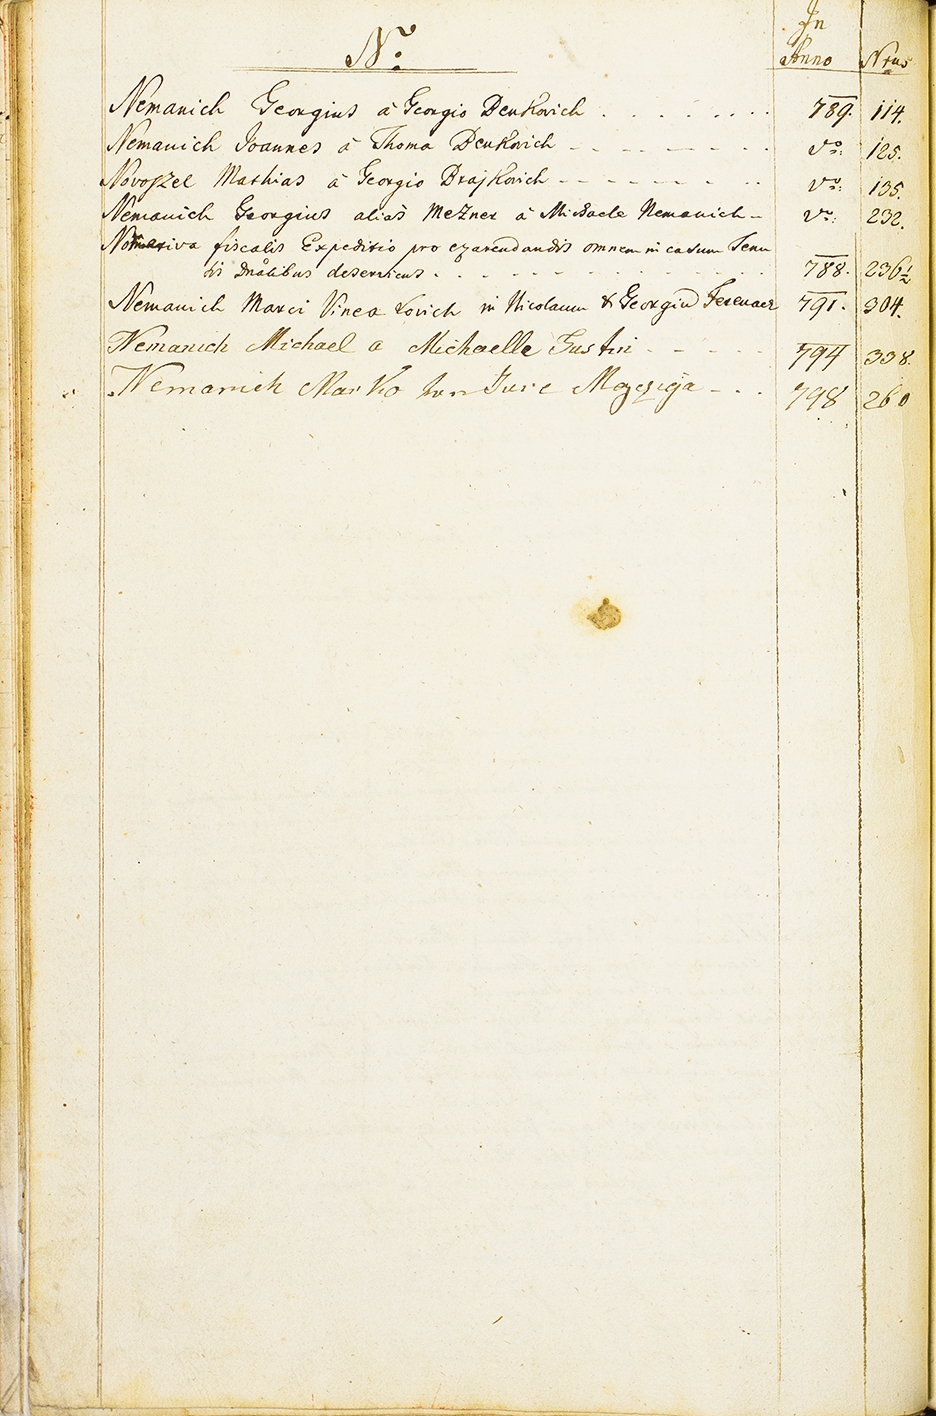 N.
In
Anno Nrus
Nemanich Georgius à Georgio Denkovich . . . . . . . . 789. 114.
Nemanich Joannes à Thoma Denkovich - - - - - - - - . . vo: 125.
Novoszel Mathias à Georgio Drajkovich - - - - - - - . . vo: 135.
Nemanich Georgius alias Mezner à Michaele Nemanich - vo: 232.
fiscalis Expeditio pro exarendandis omnem in casum
Dnalibus desertinis . . . . . . . . . . . 788. 236½
Nemanich Marci Vinea in Nicolaum & Georgiu 791. 304.
Nemanich Michael a Michaelle Gustin - - - - . 794 338.
Nemanich Marko von Jure - . . 798 260